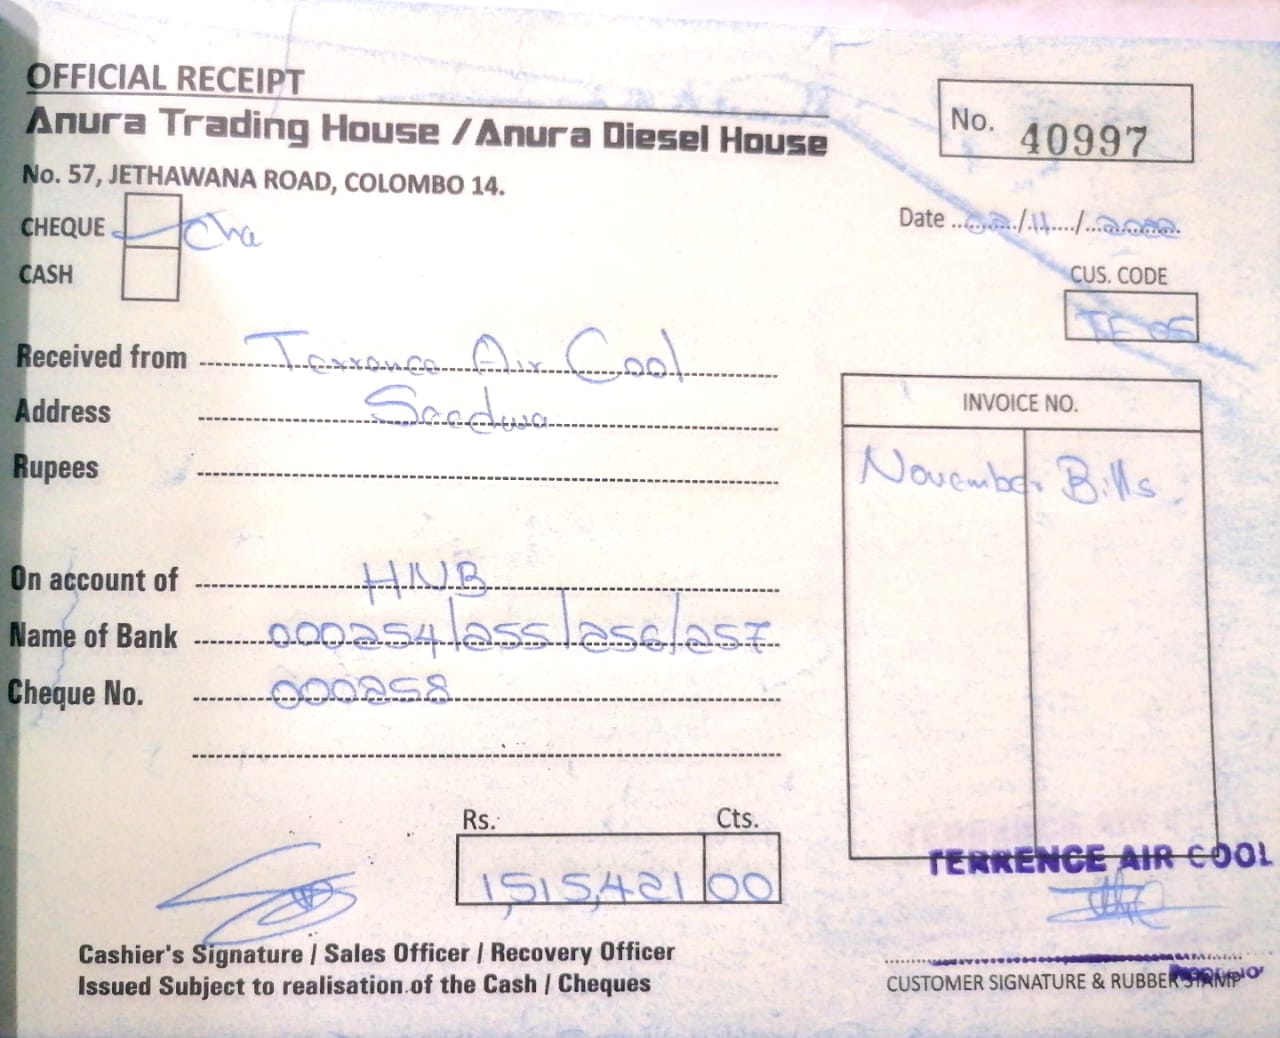 OFFICIAL RECEIPT
Anura Trading House / Anura Diesel House
No. 57, JETHAWANA ROAD, COLOMBO 14.
No. 40997
Date 02/11/2022
CHEQUE
CASH
CUS. CODE
Received from Terrence Air Cool
Address Seedwa
Rupees
INVOICE NO.
November Bills
On account of HNB
Name of Bank 000254/255/256/257
Cheque No. 000258
Rs. Cts.
1,515,421 00
TERRENCE AIR COOL
Cashier's Signature / Sales Officer / Recovery Officer
Issued Subject to realisation of the Cash / Cheques
CUSTOMER SIGNATURE & RUBBER STAMP